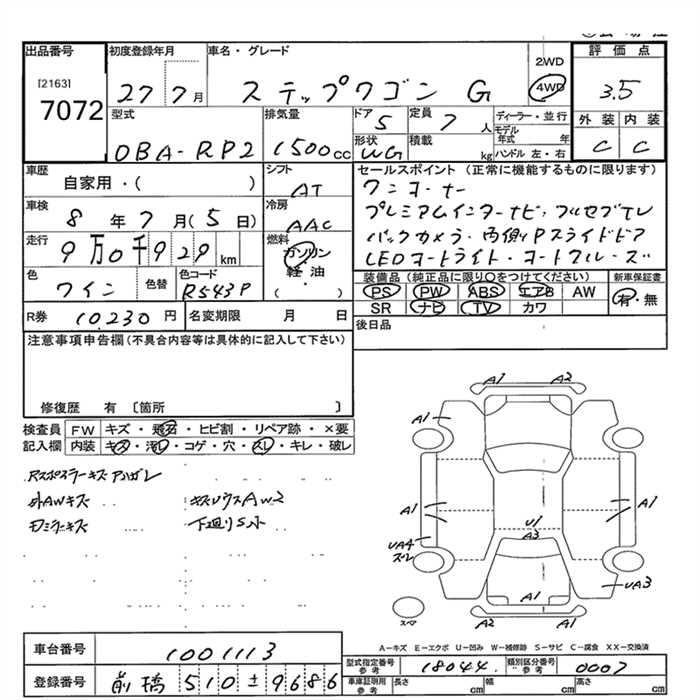 出品番号
[2163]
7072
初度登録年月
27 7月
車名・グレード
ステップワゴン G
2WD
4WD
評価点
3.5
型式
DBA-RP2
排気量
1500cc
ドア
5
定員
7人
形状
WG
積載
kg
ディーラー・並行
モデル年式 年
ハンドル 左・右
外装 内装
C C
車歴
自家用・( )
シフト
AT
セールスポイント(正常に機能するものに限ります)
ワンオーナー
プレミアムインターナビ・フルセグTV
バックカメラ・両側Pスライドドア
LEDオートライト・オートクルーズ
車検
8年7月(5日)
冷房
AAC
走行
9万0千929km
燃料
ガソリン
軽油・
( )
色
ワイン
色替
色コード
R543P
装備品(純品品に限り○をつけてください)
新車保証書
PS PW ABS エアB AW
有・無
SR ナビ TV カワ
R券
10,230円
名変期限 月 日
後日品
注意事項申告欄(不具合内容等は具体的に記入して下さい)
修復歴 有 〔箇所 〕
検査員
記入欄
FW キズ・飛石・ヒビ割・リペア跡・×要
内装 キズ・汚れ・コゲ・穴・スレ・キレ・破レ
外AWキズ
ミラーキズ
下廻りS小
A1 A2
A1
A1 A1
U1
A3
UA4
スレ
UA3
A1
スペア
A2 A1
A-キズ E-エクボ U-凹み W-補修跡 S-サビ C-腐食 XX-交換済
車台番号
1001113
登録番号
前橋 510 ± 9686
型式指定番号
参考
18044
類別区分番号
参考
0007
車庫証明用
参考
長さ cm 幅 cm 高さ cm